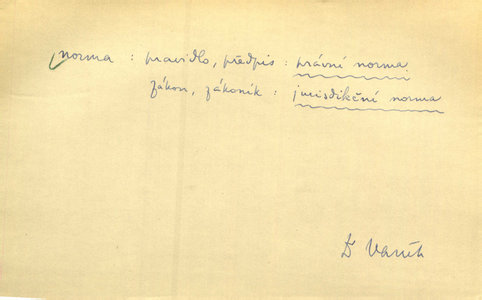 norma : pravidlo, předpis : právní norma
zákon, zákoník : jurisdikční norma